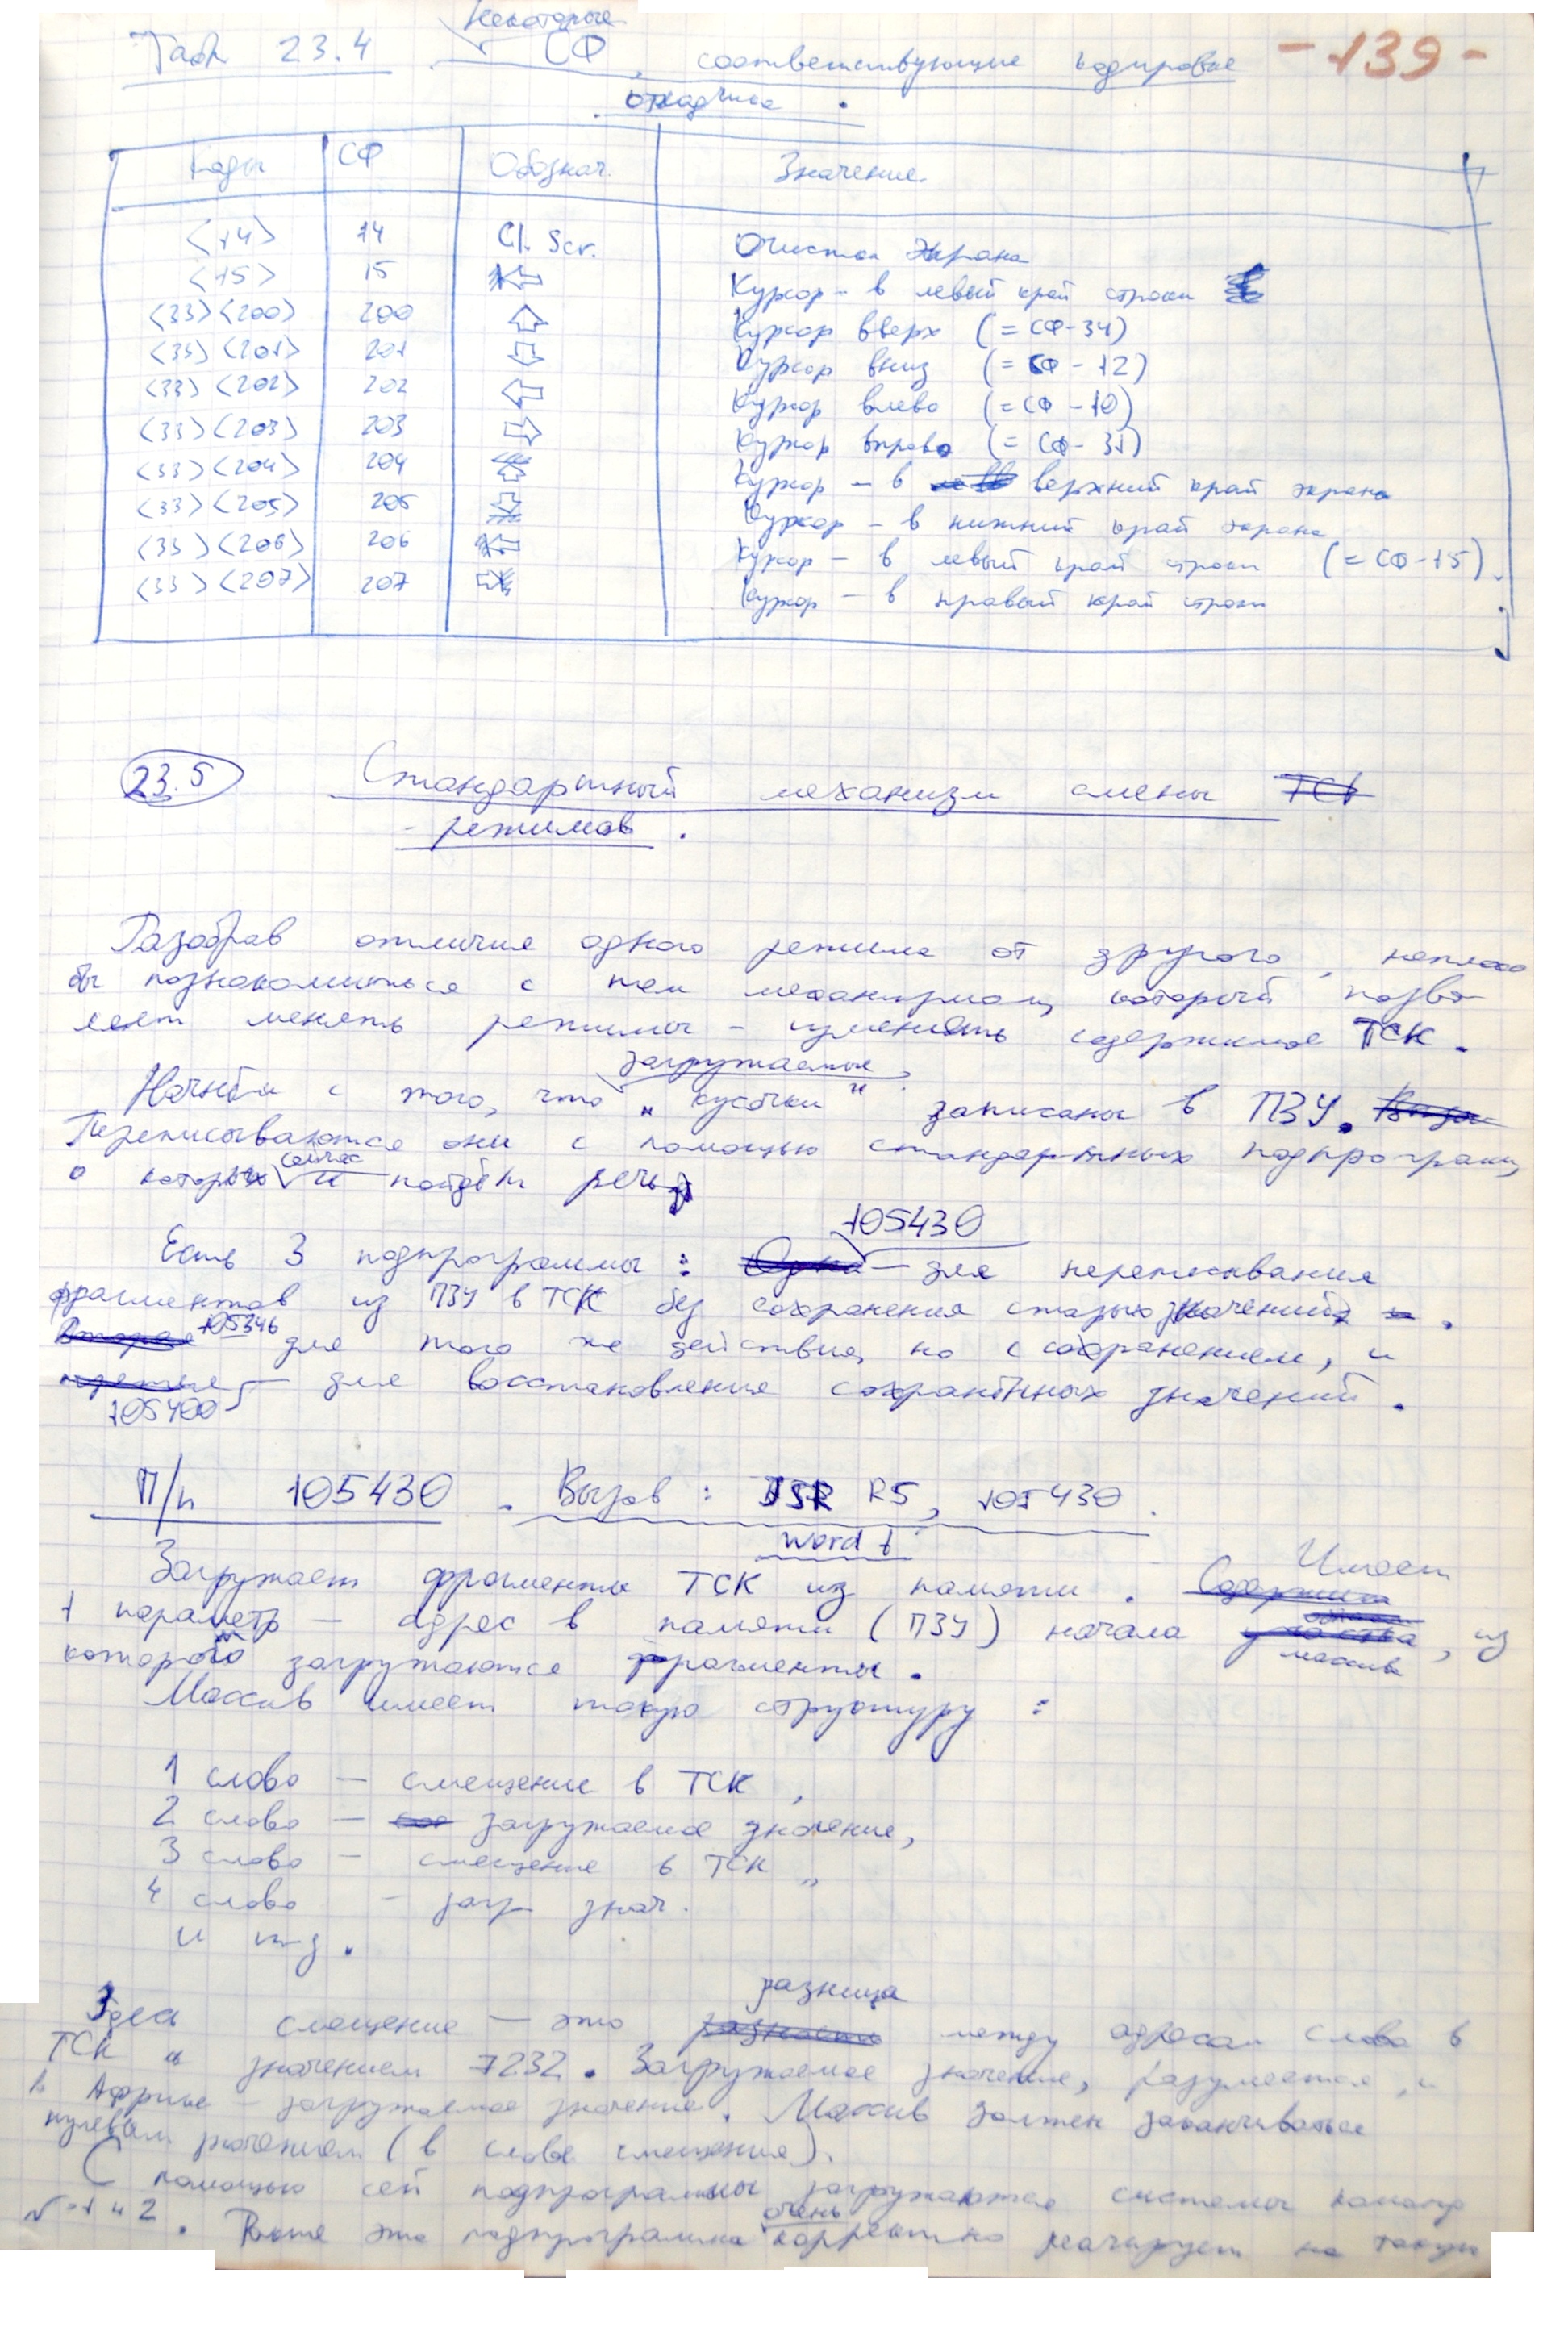 Некоторые
Табл 23.4 СФ, соответствующие кодировке - 139 -
отладчика.
Коды СФ Обознач. Значение.
<14> 14 Cl. Scr. Очистка экрана
<15> 15 Курсор - в левый край строки
<33><200> 200 Курсор вверх (= СФ-34)
<33><201> 201 Курсор вниз (= СФ - 12)
<33><202> 202 Курсор влево (= СФ - 10)
<33><203> 203 Курсор вправо (= СФ - 31)
<33><204> 204 Курсор - в верхний край экрана
<33><205> 205 Курсор - в нижний край экрана
<33><206> 206 Курсор - в левый край строки (= СФ-15).
<33><207> 207 Курсор - в правый край строки
23.5 Стандартный механизм смены
режимов.
Разобрав отличия одного режима от другого, неплохо
бы познакомиться с тем механизмом, который позво-
ляет менять режимы - изменять содержимое ТСК.
загружаемые
Начнём с того, что „кусочки" записаны в ПЗУ.
Переписываются они с помощью стандартных подпрограмм,
о которых сейчас и пойдёт речь
105430
Есть 3 подпрограммы: - для переписывания
фрагментов из ПЗУ в ТСК без сохранения старых значений.
105346 для того же действия, но с сохранением, и
- для восстановления сохранённых значений.
105400
П/п 105430. Вызов: JSR R5, 105430.
word 1
Загружает фрагменты ТСК из памяти. Имеет
1 параметр - адрес в памяти (ПЗУ) начала массива, из
которого загружаются фрагменты.
Массив имеет такую структуру:
1 слово - смещение в ТСК,
2 слово - загружаемое значение,
3 слово - смещение в ТСК,
4 слово - загр. знач.
и т.д.
разница
Здесь смещение - это между адресом слова в
ТСК и значением 7232. Загружаемое значение, разумеется, и
в Африке - загружаемое значение. Массив должен заканчиваться
нулевым значением (в слове смещения).
С помощью сей подпрограммы загружаются системы команд
N=1 и 2. эта подпрограмма очень корректно реагирует на такую